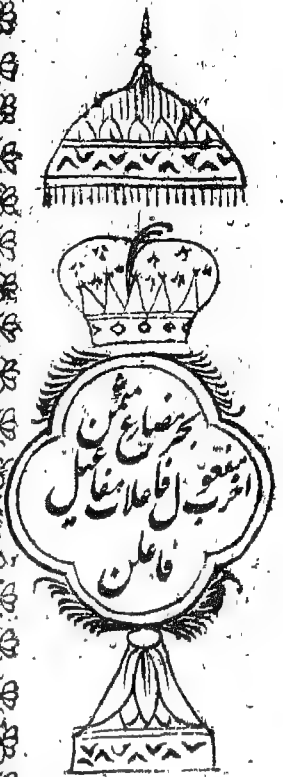 بحر مضارع مثمن
اخرب مفعول فاعلات مفاعیل
فاعلن